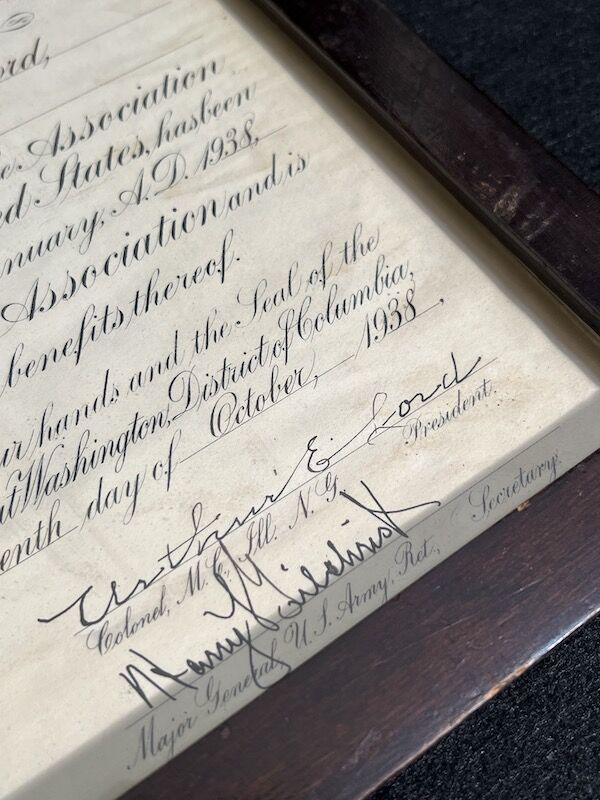 ord,
e Association
ed States, has been
nuary, A.D. 1938,
Association and is
benefits thereof.
ur hands and the Seal of the
at Washington, District of Columbia,
enth day of October, 1938,
Arthur E. Lord
President.
Colonel, M.C., Ill. N.G.
Harry Gilchrist
Secretary.
Major General, U.S. Army, Ret.,